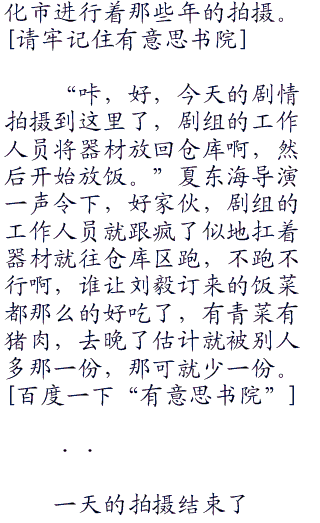 化市进行着那些年的拍摄。
[请牢记住有意思书院]
“咔，好，今天的剧情
拍摄到这里了，剧组的工作
人员将器材放回仓库啊，然
后开始放饭。”夏东海导演
一声令下，好家伙，剧组的
工作人员就跟疯了似地扛着
器材就往仓库区跑，不跑不
行啊，谁让刘毅订来的饭菜
都那么的好吃了，有青菜有
猪肉，去晚了估计就被别人
多那一份，那可就少一份。
[百度一下“有意思书院”]
．．
一天的拍摄结束了